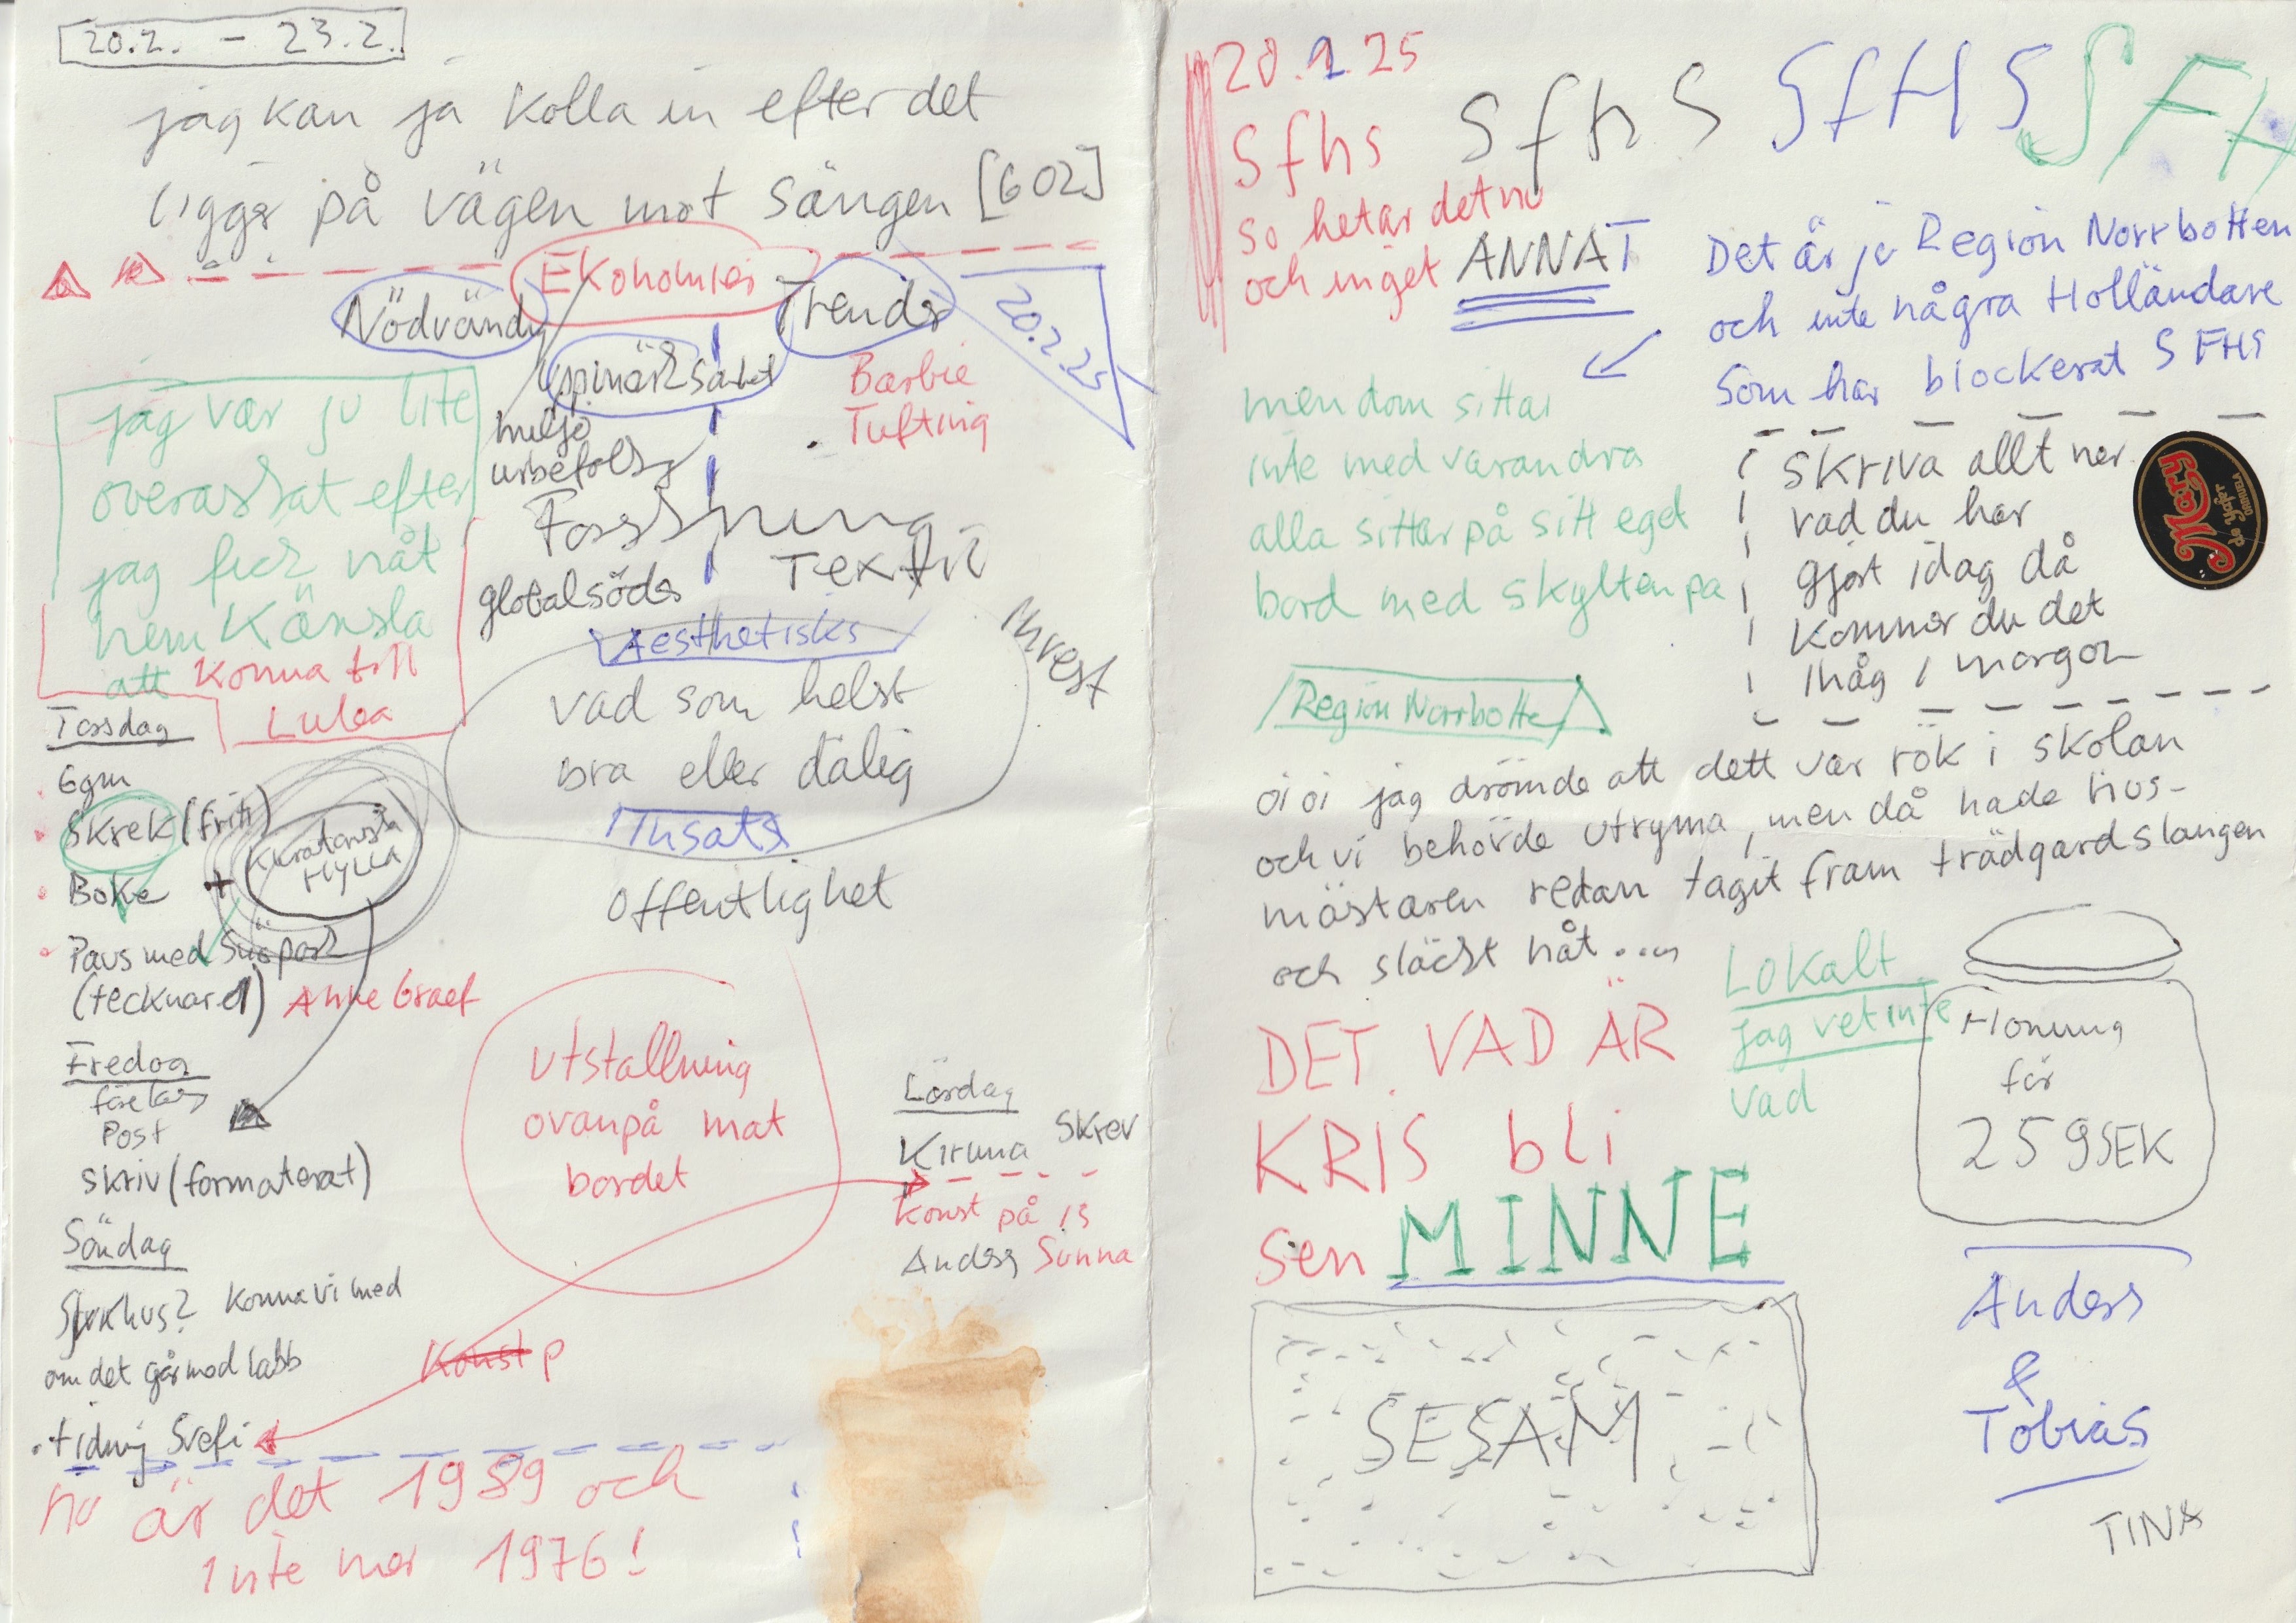 20.2. - 23.2.
jag kan ja kolla in efter det
ligger på vägen mot sängen [602]
Ekonomier
Nödvändig
Trends
20.2.25
Barbie
Tufting
miljö
urbefolk
Forskning
Textil
global söder
Aesthetisks
Invest
vad som helst
bra eller dålig
Insats
Offentlighet
jag var ju lite
överaskat efter
jag fick nåt
hem Känsla
att komma till
Lulea
Torsdag
Gym
Skrek (fritt)
Boke +
Kuratorista
HYLLA
Paus med Süspark
(tecknare) Anke Graef
Fredag
företags
Post
skriv (formaterat)
Söndag
Sjukhus? Komma vi med
om det går mod labb
tidning Svefi
Utstallning
ovanpå mat
bordet
Lördag
Kiruna Skrev
Konst på is
Anders Sunna
Konst p
nu är det 1989 och
inte mer 1976!
20.2.25
Sfhs Sfhs SfHS SFH
so hetar det nu
och inget ANNAT
Det är ju Region Norrbotten
och inte några Holländare
Som har blockerat SFHS
men dom sittar
inte med varandra
alla sittar på sitt eget
bord med skylten pa
Skriva allt ner
vad du har
gjort idag då
kommer du det
ihåg i morgon
Mary
Region Norrbotten
oi oi jag drömde att dett var rök i skolan
och vi behövde utryma, men då hade hus-
mästaren redan tagit fram trädgardslangen
och släckt nåt....
LOKALT
jag vet inte
vad
DET VAD ÄR
KRIS bli
sen MINNE
Honung
för
259SEK
SESAM
Anders
&
Tobias
TINA